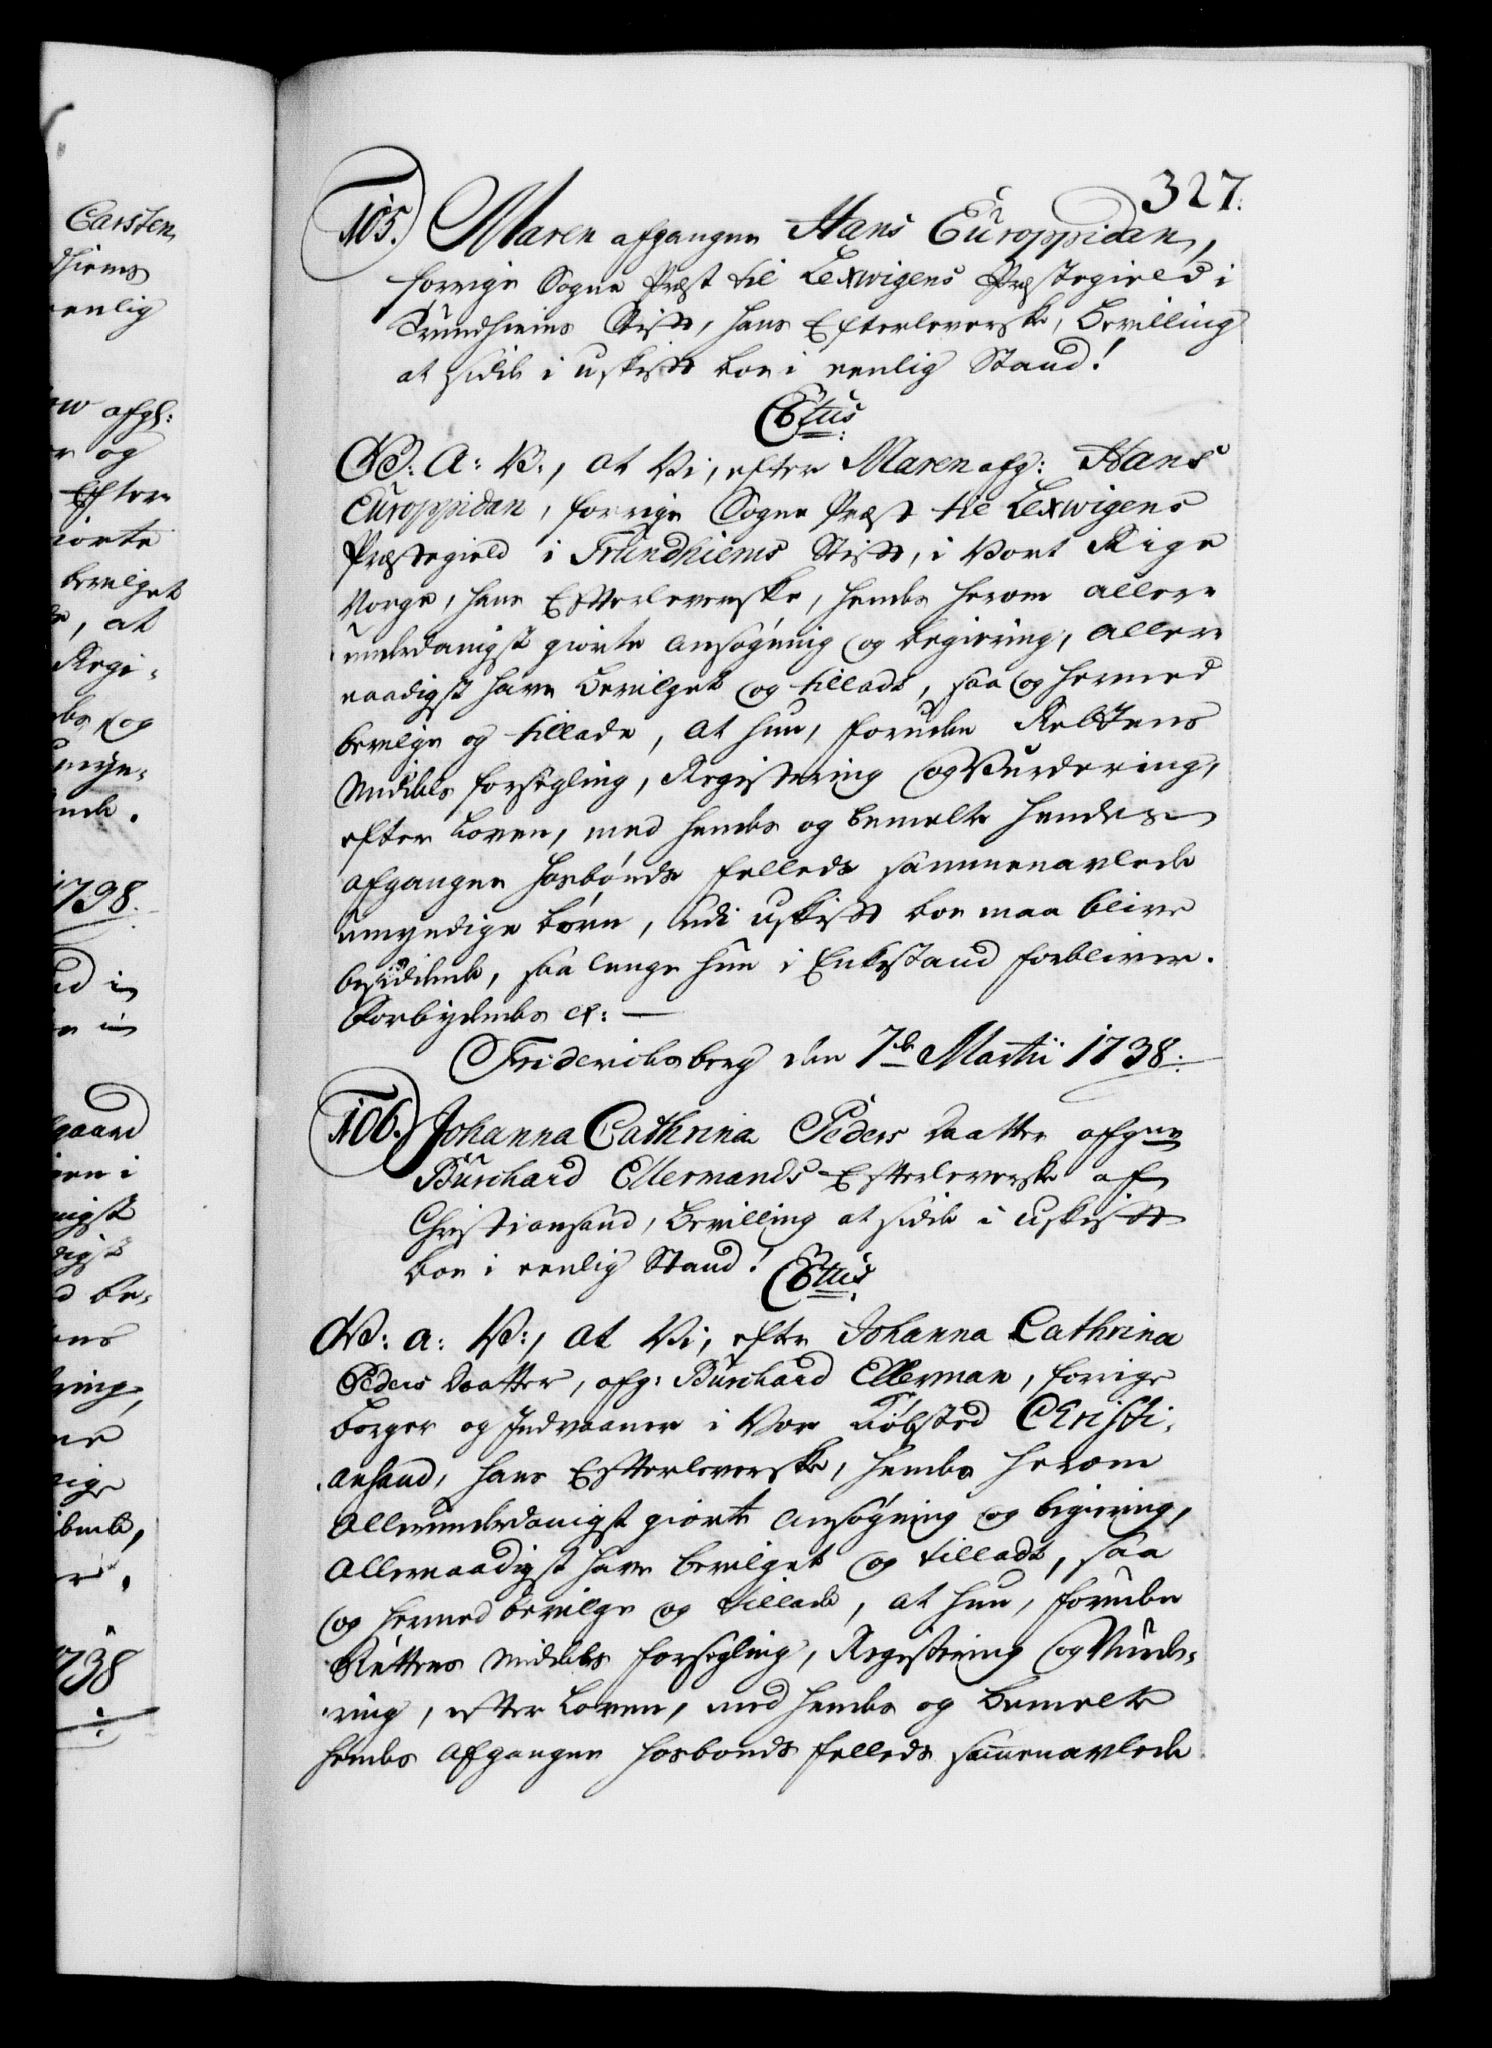 327.
105. Maren afgangne Hans Europpidan,
forrige Sogne Præst til Lexwigens Præstegield i
Trundhiems Stift, hans Efterleverske, Bevilling
at sidde i uskift boe i eenlig Stand!
C6tus
W: A: V:, at Vi, efter Maren afg: Hans
Europpidan, forrige Sogne Præst til Lexwigens
Præstegield i Trundhiems Stift, i Vort Rige
Norge, hans Efterleverske, hendes herom aller-
underdanigst giorte ansøgning og begiering, aller-
naadigst have bevilget og tilladt, saa og hermed
bevilge og tillade, at hun, foruden Rettens
Middels forsegling, Registering og Vurdering,
efter Loven, med hendes og bemelte hendes
afgangne Hosbonds felleds sammenavlede
umyndige børn, udi uskift boe maa blive
besiddende, saa lenge hun i Enkestand forbliver.
Forbydendes etc: —
Fridericksberg den 7de Martii 1738.
106. Johanna Cathrina Peders daatter afgne
Burchard Ellermands Efterleverske af
Christiansand, bevilling at sidde i uskift
boe i eenlig Stand! C6tus
W: a: V:, at Vi, efter Johanna Cathrina
Peders daatter, afg: Burchard Ellerman, forrige
borger og Indvaaner i Vor Kiøbsted Christi-
ansand, hans Efterleverske, hendes herom
allerunderdanigst giorte ansøgning og begiering,
allernaadigst have bevilget og tilladt, saa
og hermed bevilge og tillade, at hun, foruden
Rettens Middels forsegling, Registering og Vurde-
ring, efter Loven, med hendes og bemelte
hendes afgangne Hosbonds felleds sammenavlede
Carsten
dhiems
eenlig
afgl:
og
Efter-
giorte
bevilget
, at
Regi-
og
1738.
gaard
en i
be-
1738